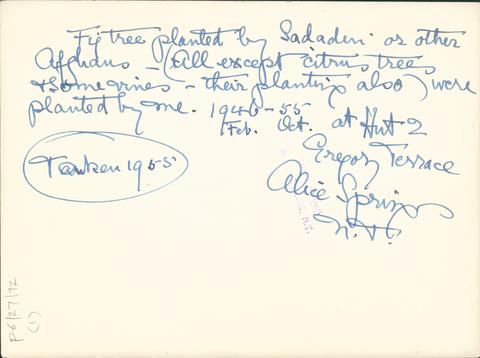 Fig tree planted by Sadadin or other
Afghans - (All except citrus trees
& some vines - their planting also) were
planted by me. 1946 - 55
Feb. Oct. at Hut 2
Gregory Terrace
Alice Springs
N.T.
Taken 1955
P6/27/72
(1)